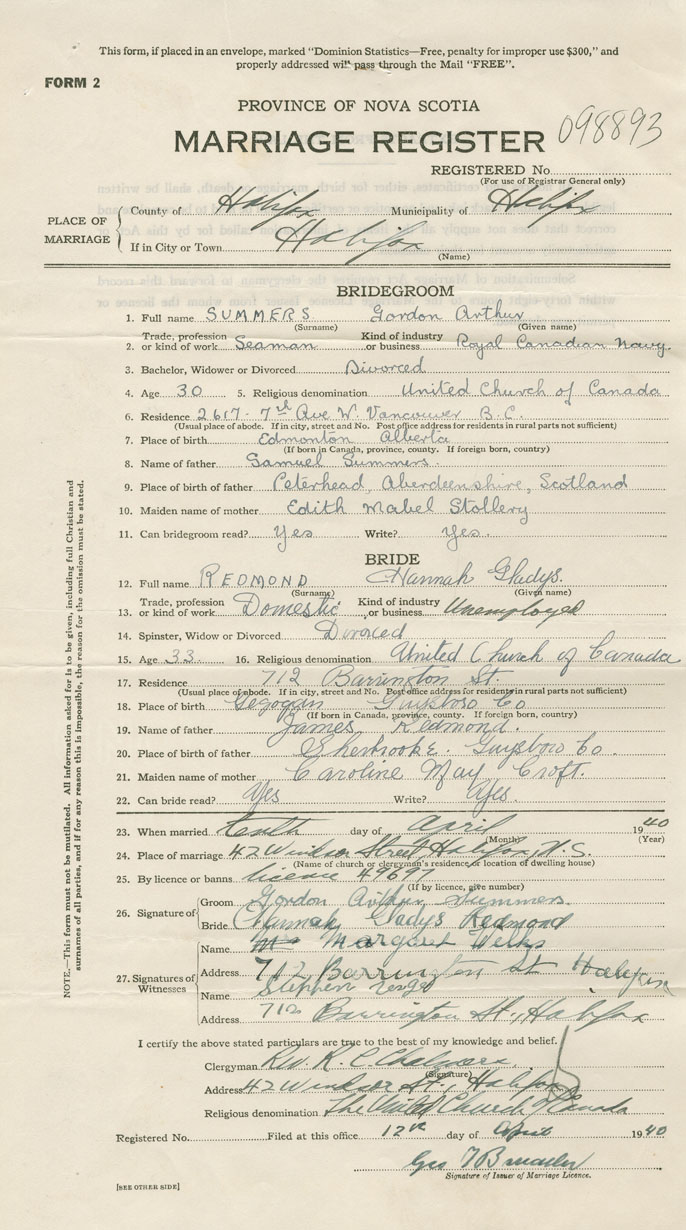 This form, if placed in an envelope, marked "Dominion Statistics—Free, penalty for improper use $300," and
properly addressed will pass through the Mail "FREE".
FORM 2
PROVINCE OF NOVA SCOTIA
MARRIAGE REGISTER 098893
REGISTERED No.
(For use of Registrar General only)
PLACE OF MARRIAGE
County of Halifax Municipality of Halifax
If in City or Town Halifax
(Name)
BRIDEGROOM
1. Full name SUMMERS Gordon Arthur
(Surname) (Given name)
2. Trade, profession or kind of work Seaman Kind of industry or business Royal Canadian Navy.
3. Bachelor, Widower or Divorced Divorced
4. Age 30 5. Religious denomination United Church of Canada
6. Residence 2617- 7th Ave W. Vancouver B.C.
(Usual place of abode. If in city, street and No. Post office address for residents in rural parts not sufficient)
7. Place of birth Edmonton Alberta
(If born in Canada, province, county. If foreign born, country)
8. Name of father Samuel Summers.
9. Place of birth of father Peterhead, Aberdeenshire, Scotland
10. Maiden name of mother Edith Mabel Stollery
11. Can bridegroom read? Yes Write? Yes.
BRIDE
12. Full name REDMOND Hannah Gladys.
(Surname) (Given name)
13. Trade, profession or kind of work Domestic Kind of industry or business Unemployed
14. Spinster, Widow or Divorced Divorced
15. Age 33. 16. Religious denomination United Church of Canada
17. Residence 712 Barrington St.
(Usual place of abode. If in city, street and No. Post office address for residents in rural parts not sufficient)
18. Place of birth Gegogan Guysboro Co
(If born in Canada, province, county. If foreign born, country)
19. Name of father James Redmond.
20. Place of birth of father Sherbrooke. Guysboro Co.
21. Maiden name of mother Caroline May Croft.
22. Can bride read? Yes Write? Yes.
23. When married tenth day of April 1940
(Month) (Year)
24. Place of marriage 42 Windsor Street, Halifax, N.S.
(Name of church or clergyman's residence or location of dwelling house)
25. By licence or banns licence 49697
(If by licence, give number)
26. Signature of
Groom Gordon Arthur Summers.
Bride Hannah Gladys Redmond
27. Signatures of Witnesses
Name Margaret
Address 712 Barrington St Halifax
Name Stephen
Address 712 Barrington St., Halifax
I certify the above stated particulars are true to the best of my knowledge and belief.
Clergyman Rev. R. C. Chalmers.
(Signature)
Address 42 Windsor St., Halifax
Religious denomination The United Church of Canada
Registered No. Filed at this office 12th day of April 1940
Geo
Signature of Issuer of Marriage Licence.
[SEE OTHER SIDE]
NOTE.—This form must not be mutilated. All information asked for is to be given, including full Christian and
surnames of all parties, and if for any reason this is impossible, the reason for the omission must be stated.